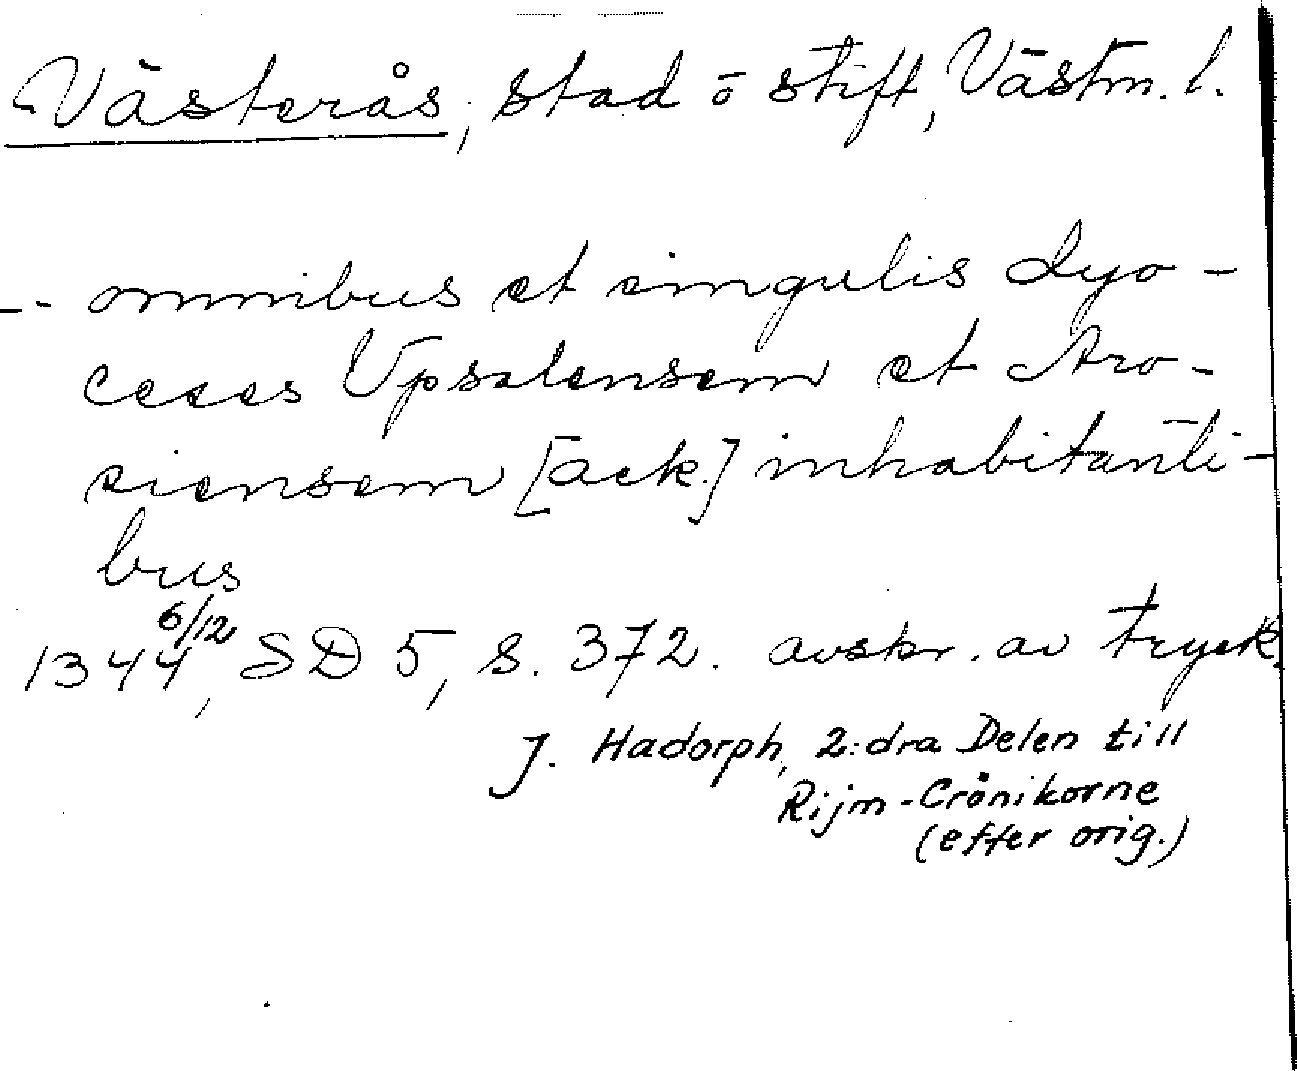 Västerås, stad o stift, Västm. l.
-- omnibus et singulis dyo-
ceses Upsalensem et Aro-
siensem [ack.] inhabitanti-
bus
1344 6/12, SD 5, s. 372. avskr. av tryck.
J. Hadorph, 2:dra Delen till
Rijm-Crönikorne
(efter orig.)